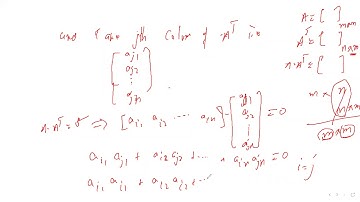 and jth column of A^T i.e
[a_{j1}
a_{j2}
⋮
a_{jn}]
A·A^T = 0 ⇒ [a_{i1} a_{i2} ... a_{in}] · [a_{j1} a_{j2} ⋮ a_{jn}] = 0
a_{i1} a_{j1} + a_{i2} a_{j2} + ... + a_{in} a_{jn} = 0
i = j
a_{i1} a_{i1} + a_{i2} a_{i2} + ...
A = [ ]_{m×n}
A^T = [ ]_{n×m}
A·A^T = [ ]
m × n
n × m
m × m